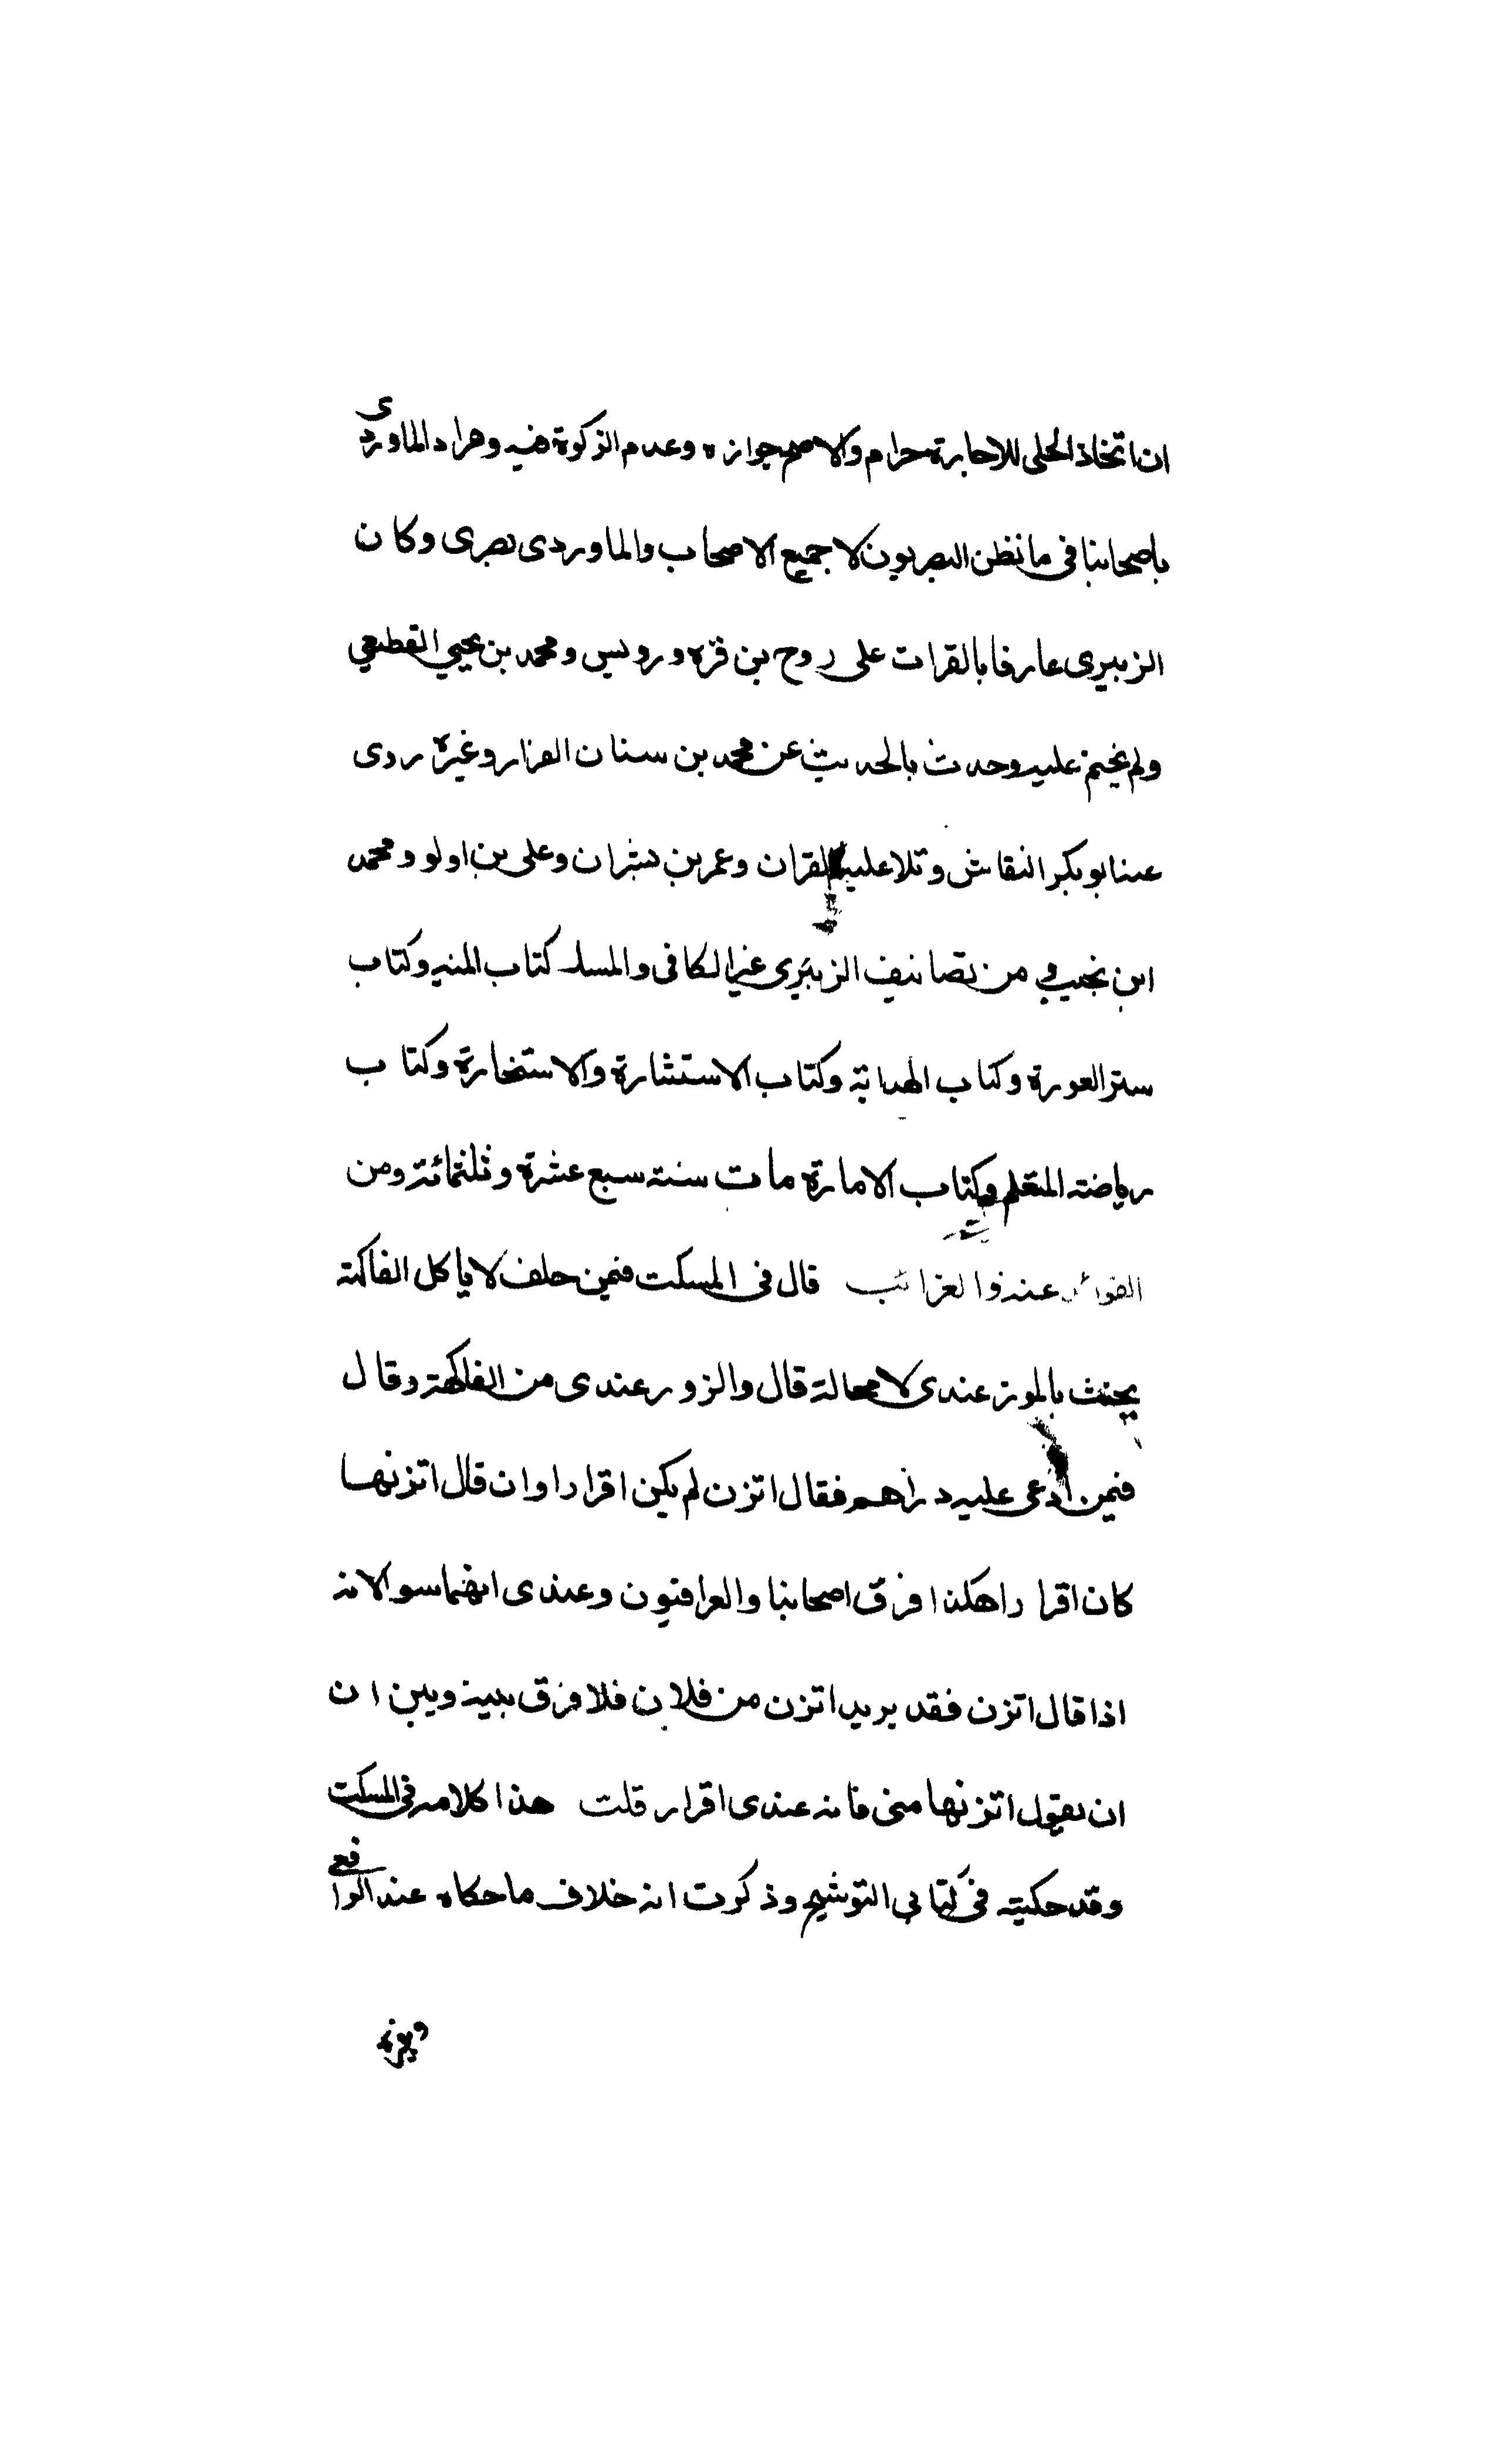 ان اتخاذ الحلى للاجارة حرام والاصح جوازه وعدم الزكوة فيه ومراد الماوردى
باصحابنا فى ما نظن البصريون لا جميع الاصحاب والماوردى بصرى وكان
الزبيرى عارفا بالقرات على روح بن قره ورويس ومحمد بن يحيي القطيعي
ولم يختم عليه وحدث بالحديث عن محمد بن سنان القزاز وغيره روى
عنه ابو بكر النقاش وتلا عليه القران وعمر بن بشران وعلى بن لولو ومحمد
ابن بخيت ومن تصانيف الزبيرى غير الكافى والمسك كتاب النيه وكتاب
ستر العورة وكتاب الهداية وكتاب الاستشارة والاستخارة وكتاب
رياضته المتعلم وكتاب الامارة مات سنة سبع عشرة وثلثمائة ومن
الفوائد عنه والغرائب قال فى المسكت فيمن حلف لا ياكل الفاكهة
يحنث بالموز عندى لا محالة قال والزور عندى من الفاكهة وقال
فيمن ادعى عليه دراهم فقال اتزن لم يكن اقرارا وان قال اتزنها
كان اقرارا هكذا فرق اصحابنا والعراقيون وعندى انهما سوا لانه
اذا قال اتزن فقد يريد اتزن من فلان فلا فرق بينه وبين ان
ان يقول اتزنها منى فانه عندى اقرار قلت هذا كلامه فى المسكت
وقد حكيته فى كتابى التوشيح وذكرت انه خلاف ما حكاه عند الرافعى